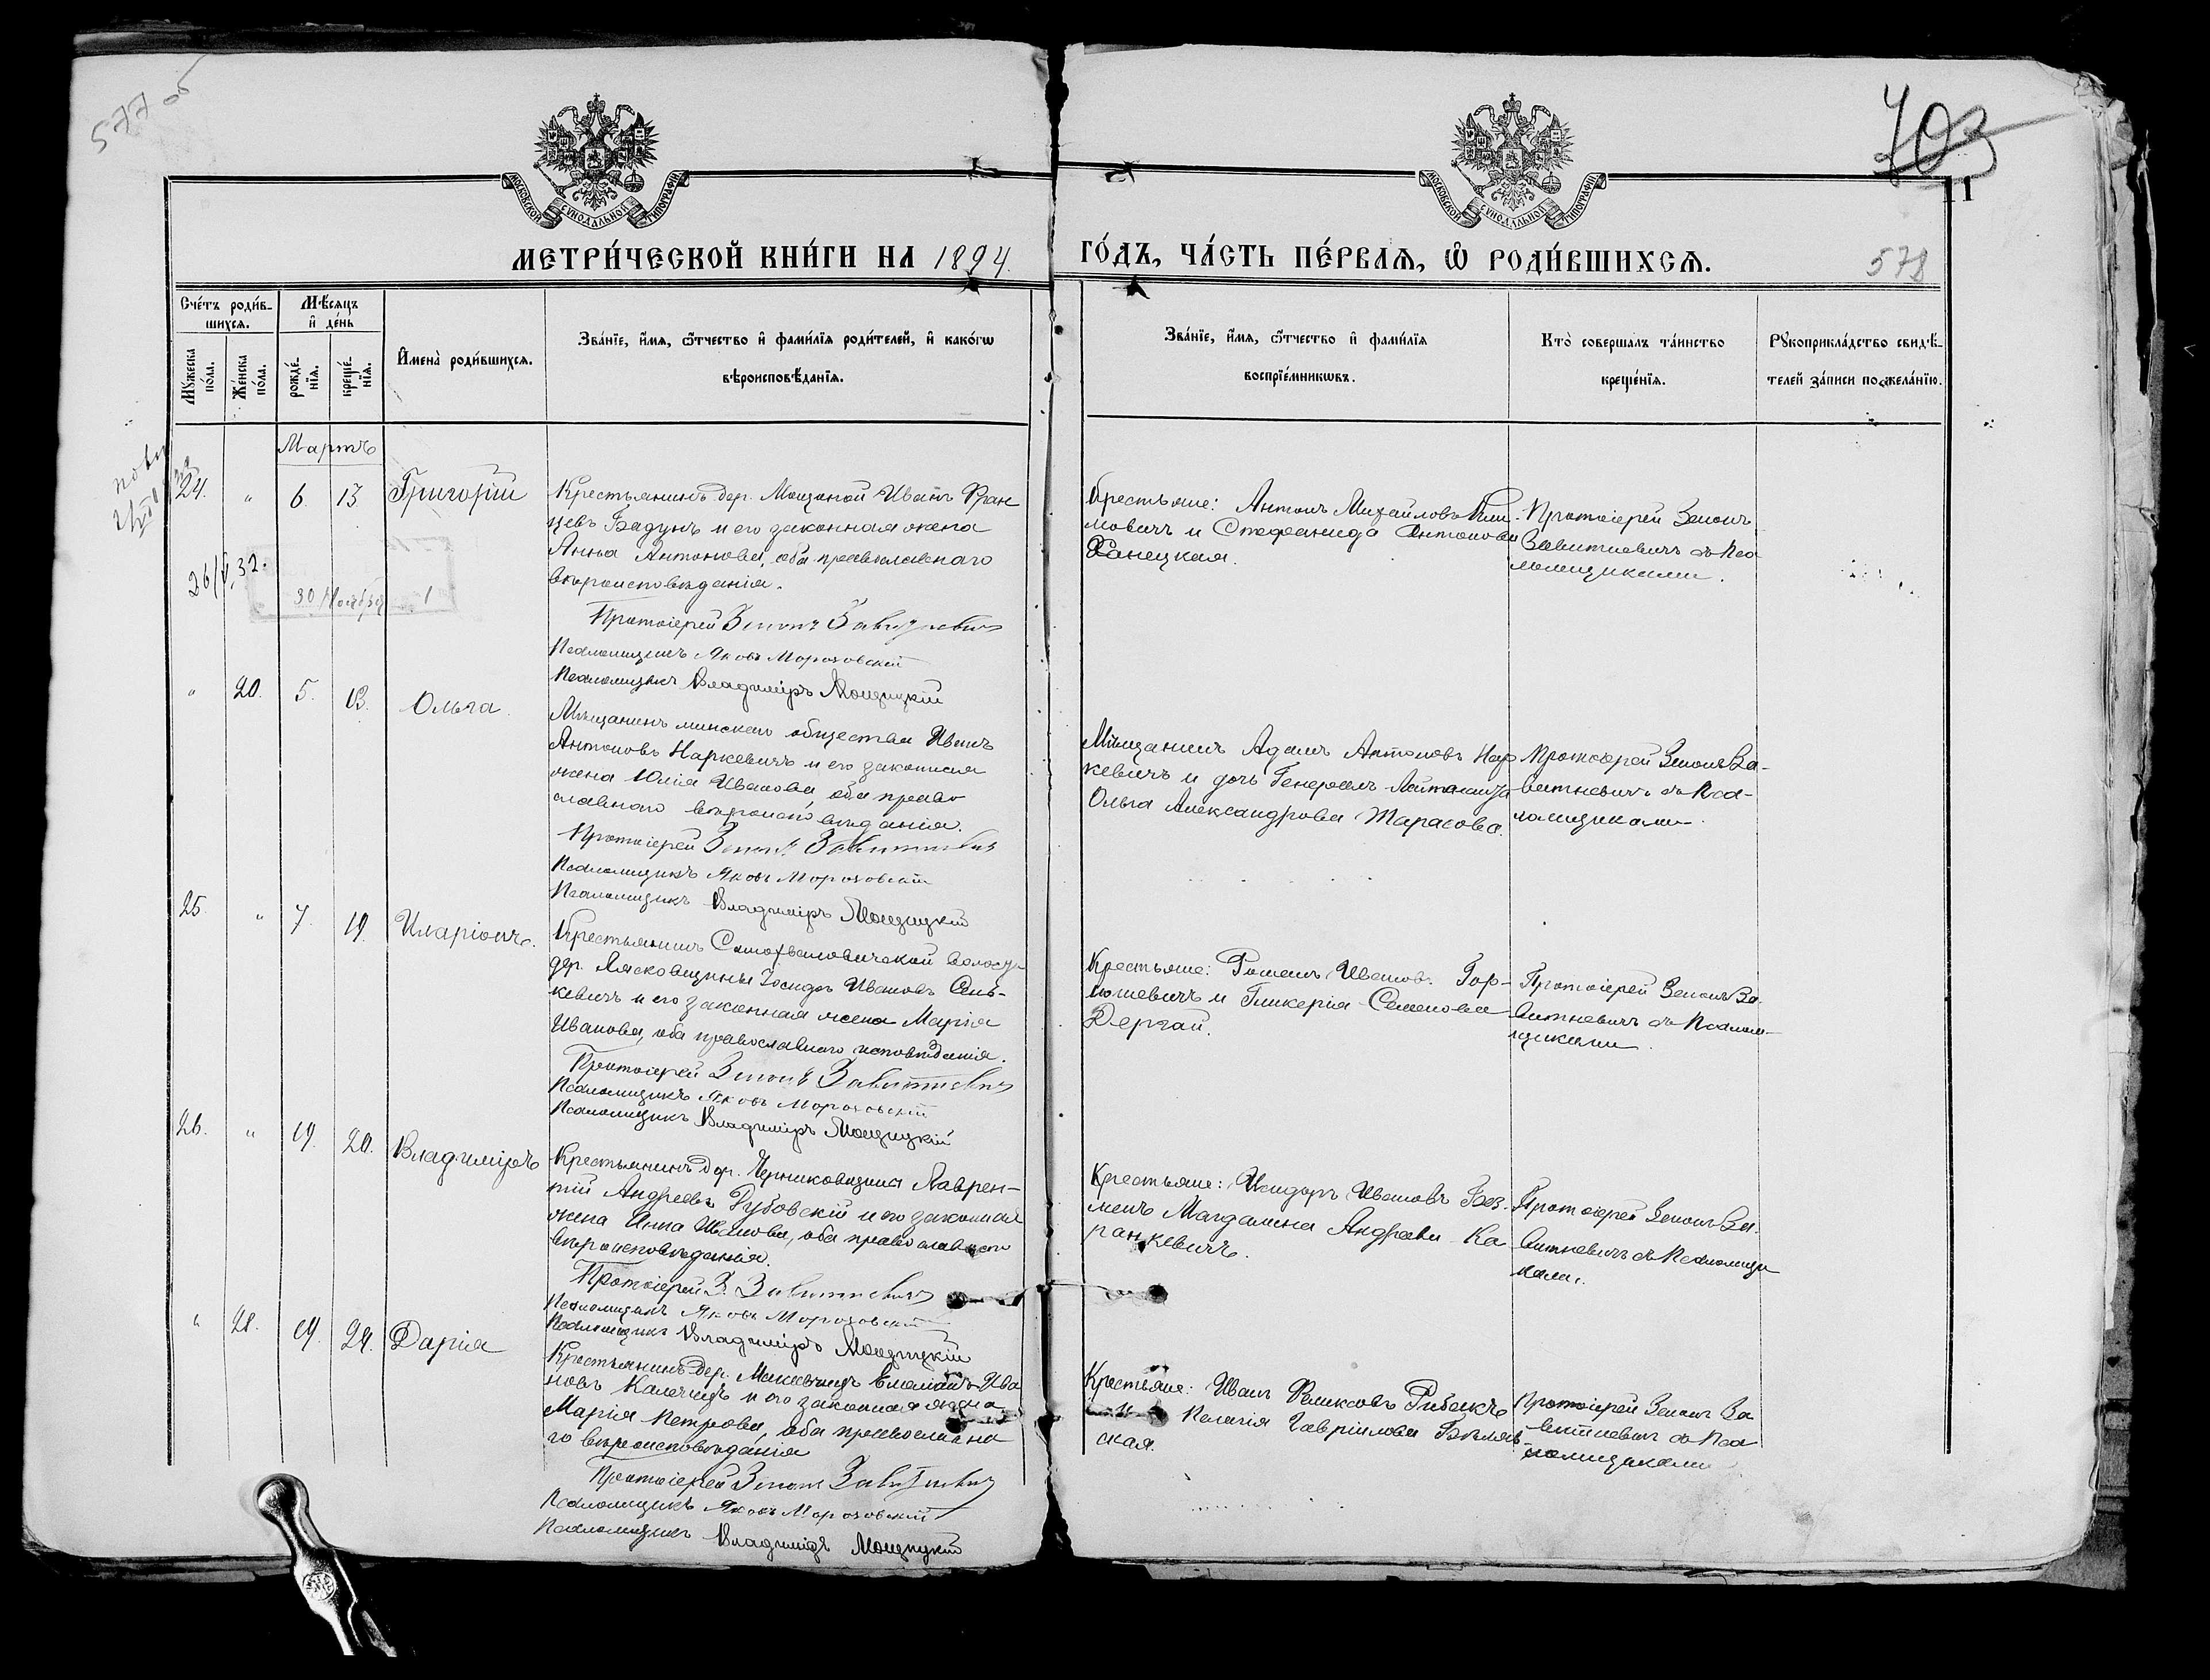 577 об
703
11
МОСКОВСКОЙ СѴНОДАЛЬНОЙ ТИПОГРАФІИ
МОСКОВСКОЙ СѴНОДАЛЬНОЙ ТИПОГРАФІИ
МЕТРИ́ЧЕСКОЙ КНИ́ГИ НА 1894.
ГО́ДЪ, ЧА́СТЬ ПЕ́РВАѦ, Ѽ РОДИ́ВШИХСѦ.
578
Сче́тъ роди́в-
шихсѧ.
Мꙋ́жеска по́ла.
Же́нска по́ла.
Мѣ́сѧцъ
и҆ де́нь
рожде́-
нїѧ.
креще́-
нїѧ.
И҆мена̀ роди́вшихсѧ.
Зва́нїе, и҆́мѧ, ѻ҆́тчество и҆ фами́лїѧ роди́телей, и҆ како́гѡ
вѣроисповѣ́данїѧ.
Зва́нїе, и҆́мѧ, ѻ҆́тчество и҆ фами́лїѧ
воспрїе́мникѡвъ.
Кто̀ соверша́лъ та́инство
креще́нїѧ.
Рꙋкоприкла́дство свидѣ́-
телей за́писи по жела́нїю.
Мартъ
24. " 6. 13 Григорій
Крестьянинъ дер. Мощоной Иванъ Фран
цевъ Бадунъ и его законная жена
Анна Антонова, оба православнаго
вѣроисповѣданія.
Протоіерей Зенонъ Завитневичъ
Псаломщикъ Яковъ Морозовскій
Псаломщикъ Владиміръ Мощицкій
Крестьяне: Антонъ Михайловъ Кли-
мовичъ и Стефанида Антонова
Ханецкая.
Протоіерей Зенонъ
Завитневичъ съ Пса
ломщиками.
26/V 32.
30 Ноября 1
" 20. 5. 13. Ольга.
Мѣщанинъ минскаго общества Иванъ
Антоновъ Наркевичъ и его законная
жена Юлія Иванова, оба право
славнаго вѣроисповѣданія.
Протоіерей Зенонъ Завитневичъ
Псаломщикъ Яковъ Морозовскій
Псаломщикъ Владиміръ Мощицкій
Мѣщанинъ Адамъ Антоновъ Нар
кевичъ и дочь Генералъ Лейтенанта
Ольга Александрова Тарасова.
Протоіерей Зенонъ За-
витневичъ съ Пса-
ломщиками.
25. " 7. 19. Иларіонъ.
Крестьянинъ Самохваловичской волости
дер. Лясковщины Іосифъ Ивановъ Сень-
кевичъ и его законная жена Марія
Иванова, оба православнаго исповѣданія.
Протоіерей Зенонъ Завитневичъ
Псаломщикъ Яковъ Морозовскій
Псаломщикъ Владиміръ Мощицкій
Крестьяне: Романъ Ивановъ Гор-
ношевичъ и Гликерія Семенова
Дергай.
Протоіерей Зенонъ За-
витневичъ съ Псалом-
щиками.
26. " 19. 20. Владиміръ
Крестьянинъ дер. Черниковщина Лаврен-
тій Андреевъ Дубовскій и его законная
жена Анна Иванова, оба православнаго
вѣроисповѣданія.
Протоіерей З. Завитневичъ
Псаломщикъ Яковъ Морозовскій
Псаломщикъ Владиміръ Мощицкій
Крестьяне: Исидоръ Ивановъ Без-
менъ Магдалина Андреева Ка
ранкевичъ.
Протоіерей Зенонъ За-
витневичъ съ Псаломщи
ками.
" 21. 19. 24. Дарія
Крестьянинъ дер. Ива
новъ Калечицъ и его законная жена
Марія Петрова, оба православна
го вѣроисповѣданія
Протоіерей Зенонъ Завитневичъ
Псаломщикъ Яковъ Морозовскій
Псаломщикъ Владиміръ Мощицкій
Крестьяне: Иванъ Феликсовъ Рибакъ
и Пелагія Гавріилова Бѣляв-
ская.
Протоіерей Зенонъ За
витневичъ съ Пса
ломщиками